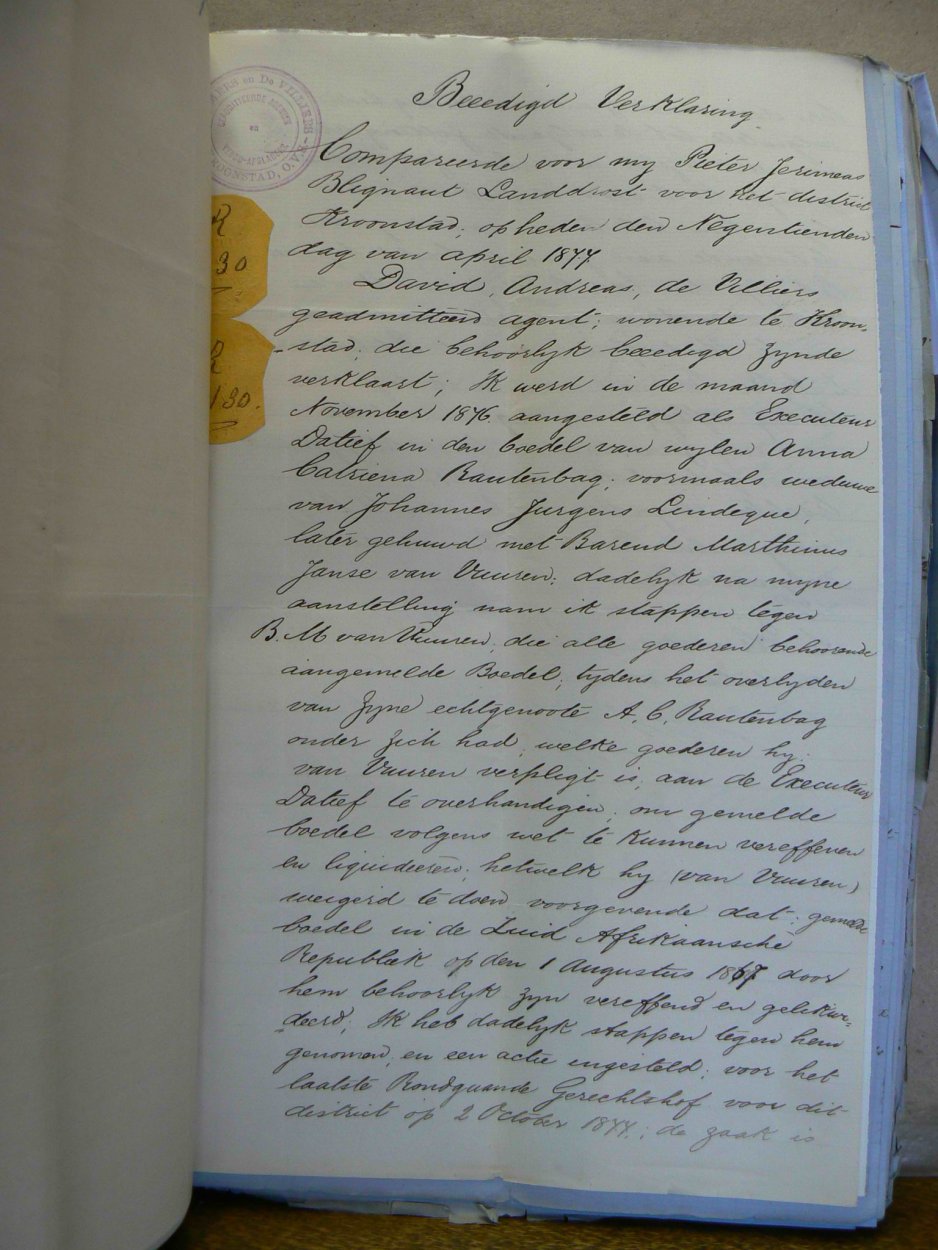 Beeedigd Verklaring
ERS en DE VILLIERS
GEADMITTEERDE AGENTEN
en
VENDU-AFSLAGERS
KROONSTAD, O.V.S.
Compareerde voor my Pieter Jerimeas
Blignaut Landdrost voor het district
Kroonstad, op heden den Negentienden
dag van april 1877
R
30
David, Andreas, de Villiers
geadmitteerd agent; wonende te Kroon-
stad, die behoorlyk beeedigd zynde
R
130.
verklaart; Ik werd in de maand
November 1876 aangesteld als Executeur
Datief in den boedel van wylen Anna
Catriena Rautenbag, voormaals weduwe
van Johannes Jurgens Lindeque,
later gehuwd met Barend Marthinus
Janse van Vuuren; dadelyk na myne
aanstelling nam ik stappen tegen
B. M van Vuuren, die alle goederen behoorende
aangemelde Boedel, tydens het overlyden
van zyne echtgenoote A, C, Rautenbag
onder zich had, welke goederen hy,
van Vuuren verpligt is, aan de Executeur
Datief te overhandigen, om gemelde
boedel volgens wet te kunnen vereffenen
en liquideeren, hetwelk hy (van Vuuren)
weigerd te doen voorgevende dat: gemelde
boedel in de Zuid Afrikaansche
Republiek op den 1 Augustus 1867 door
hem behoorlyk zyn vereffend en gelikwi-
deerd, Ik heb dadelyk stappen tegen hem
genomen, en een actie ingesteld, voor het
laatste Rondgaande Gerechtshof voor dit
district op 2 October 1877; de zaak is